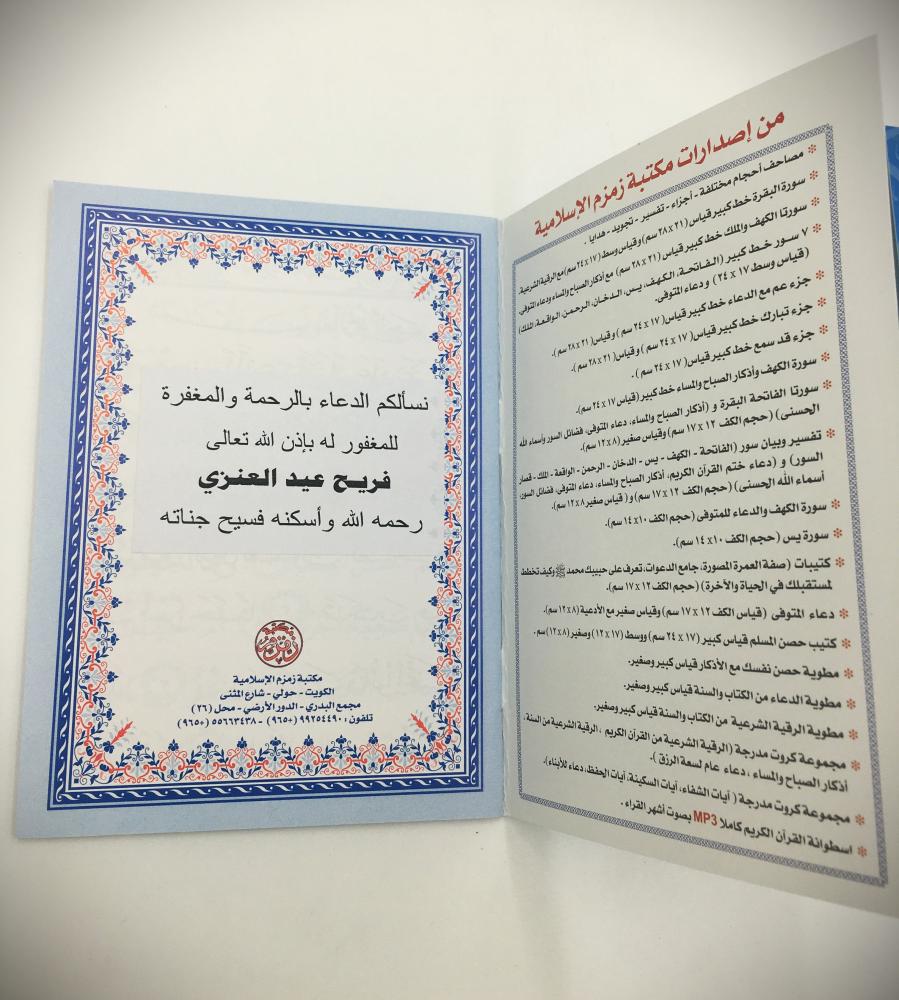 من إصدارات مكتبة زمزم الإسلامية
مصاحف أحجام مختلفة - أجزاء - تفسير - تجويد - هدايا .
سورة البقرة خط كبير قياس (٢١ x ٢٨ سم) وقياس وسط (١٧ x ٢٤ سم) مع الرقية الشرعية.
سورتا الكهف والملك خط كبير قياس (٢١ x ٢٨ سم) مع أذكار الصباح والمساء ودعاء المتوفى.
٧ سور خط كبير (الفاتحة، الكهف، يس، الدخان، الرحمن، الواقعة، الملك)
(قياس وسط ١٧ x ٢٤) ودعاء المتوفى.
جزء عم مع الدعاء خط كبير قياس (١٧ x ٢٤ سم) وقياس (٢١ x ٢٨ سم).
جزء تبارك خط كبير قياس (١٧ x ٢٤ سم) وقياس (٢١ x ٢٨ سم).
جزء قد سمع خط كبير قياس (١٧ x ٢٤ سم) .
سورة الكهف وأذكار الصباح والمساء خط كبير (قياس ١٧ x ٢٤ سم).
سورتا الفاتحة البقرة و (أذكار الصباح والمساء، دعاء المتوفى، فضائل السور وأسماء الله
الحسنى) (حجم الكف ١٢ x ١٧ سم) وقياس صغير (٨ x ١٢ سم).
تفسير وبيان سور (الفاتحة - الكهف - يس - الدخان - الرحمن - الواقعة - الملك - قصار
السور) و (دعاء ختم القرآن الكريم، أذكار الصباح والمساء، دعاء المتوفى، فضائل السور،
أسماء الله الحسنى) (حجم الكف ١٢ x ١٧ سم) و (قياس صغير ٨ x ١٢ سم).
سورة الكهف والدعاء للمتوفى (حجم الكف ١٠ x ١٤ سم).
سورة يس (حجم الكف ١٠ x ١٤ سم).
كتيبات (صفة العمرة المصورة، جامع الدعوات، تعرف على حبيبك محمد ﷺ وكيف تخطط
لمستقبلك في الحياة والآخرة) (حجم الكف ١٢ x ١٧ سم).
دعاء المتوفى (قياس الكف ١٢ x ١٧ سم) وقياس صغير مع الأدعية (٨ x ١٢ سم).
كتيب حصن المسلم قياس كبير (١٧ x ٢٤ سم) ووسط (١٢ x ١٧) وصغير (٨ x ١٢) سم .
مطوية حصن نفسك مع الأذكار قياس كبير وصغير.
مطوية الدعاء من الكتاب والسنة قياس كبير وصغير.
مطوية الرقية الشرعية من الكتاب والسنة قياس كبير وصغير.
مجموعة كروت مدرجة (الرقية الشرعية من القرآن الكريم ، الرقية الشرعية من السنة،
أذكار الصباح والمساء ، دعاء عام لسعة الرزق ).
مجموعة كروت مدرجة ( آيات الشفاء، آيات السكينة، آيات الحفظ، دعاء للأبناء).
اسطوانة القرآن الكريم كاملا MP3 بصوت أشهر القراء .
نسألكم الدعاء بالرحمة والمغفرة
للمغفور له بإذن الله تعالى
فريح عيد العنزي
رحمه الله وأسكنه فسيح جناته
مكتبة زمزم
مكتبة زمزم الإسلامية
الكويت - حولي - شارع المثنى
مجمع البدري - الدور الأرضي - محل (٢٦)
تلفون : ٩٩٢٥٤٤٩٠ (٩٦٥+) - ٥٥٦٦٣٤٣٨ (٩٦٥+)